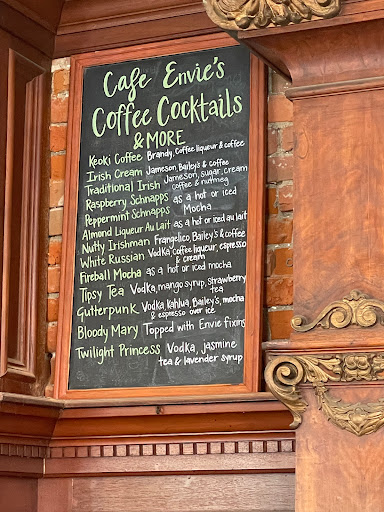 Cafe Envie's
Coffee Cocktails
& MORE
Keoki Coffee Brandy, Coffee liqueur & coffee
Irish Cream Jameson, Bailey's & coffee
Traditional Irish Jameson, sugar, cream
coffee & nutmeg
Raspberry Schnapps as a hot or iced
Peppermint Schnapps Mocha
Almond Liqueur Au Lait as a hot or iced au lait
Nutty Irishman Frangelico, Bailey's & coffee
White Russian Vodka, coffee liqueur, espresso
& cream
Fireball Mocha as a hot or iced mocha
Tipsy Tea Vodka, mango syrup, strawberry
tea
Gutterpunk Vodka, kahlua, Bailey's, mocha
& espresso over ice
Bloody Mary Topped with Envie fixins
Twilight Princess Vodka, jasmine
tea & lavender syrup